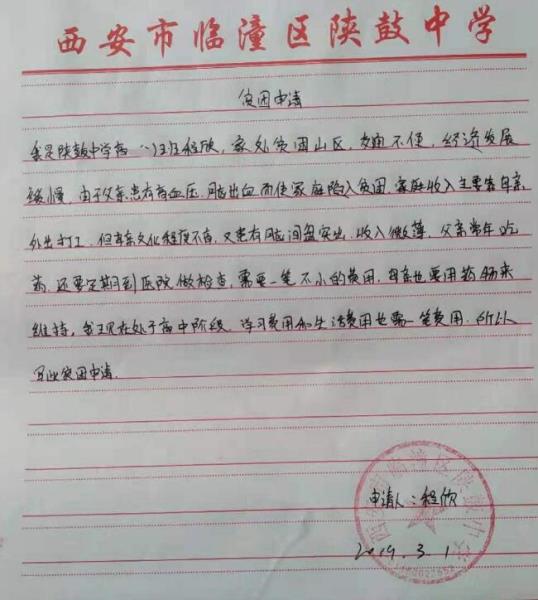 西安市临潼区陕鼓中学
贫困申请
我是陕鼓中学高一(1)班程欣，家处贫困山区，交通不便，经济发展
缓慢，由于父亲患有高血压、脑出血而使家庭陷入贫困，家庭收入主要靠母亲
外出打工，但母亲文化程度不高，又患有腰间盘突出，收入微薄，父亲常年吃
药，还要定期到医院做检查，需要一笔不小的费用，母亲也要用药物来
维持，我现在处于高中阶段，学习费用和生活费用也需一笔费用，所以
写此贫困申请。
申请人：程欣
2019.3.1
西安市临潼区陕鼓中学